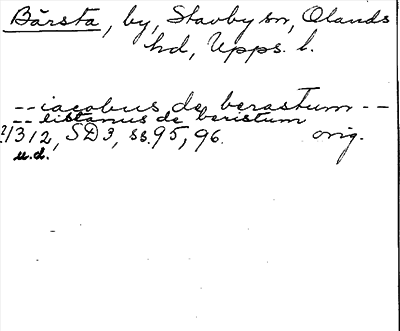 Bärsta, by, Stavby sn, Olands
hd, Upps. l.
-- iacobus de berastum --
-- listanus de beristum
2/3 12, SD3, ss. 95, 96. orig.
u.d.